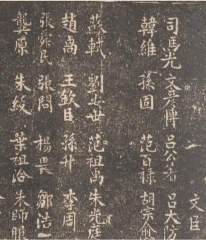 文臣
司馬光 文彦博 吕公著 吕大防
韓維 孫固 范百禄 胡宗愈
蘇軾 劉安世 范祖禹 朱光庭
趙卨 王欽臣 孫升 李周
張舜民 張問 楊畏 鄒浩
龔原 朱紱 葉祖洽 朱師服